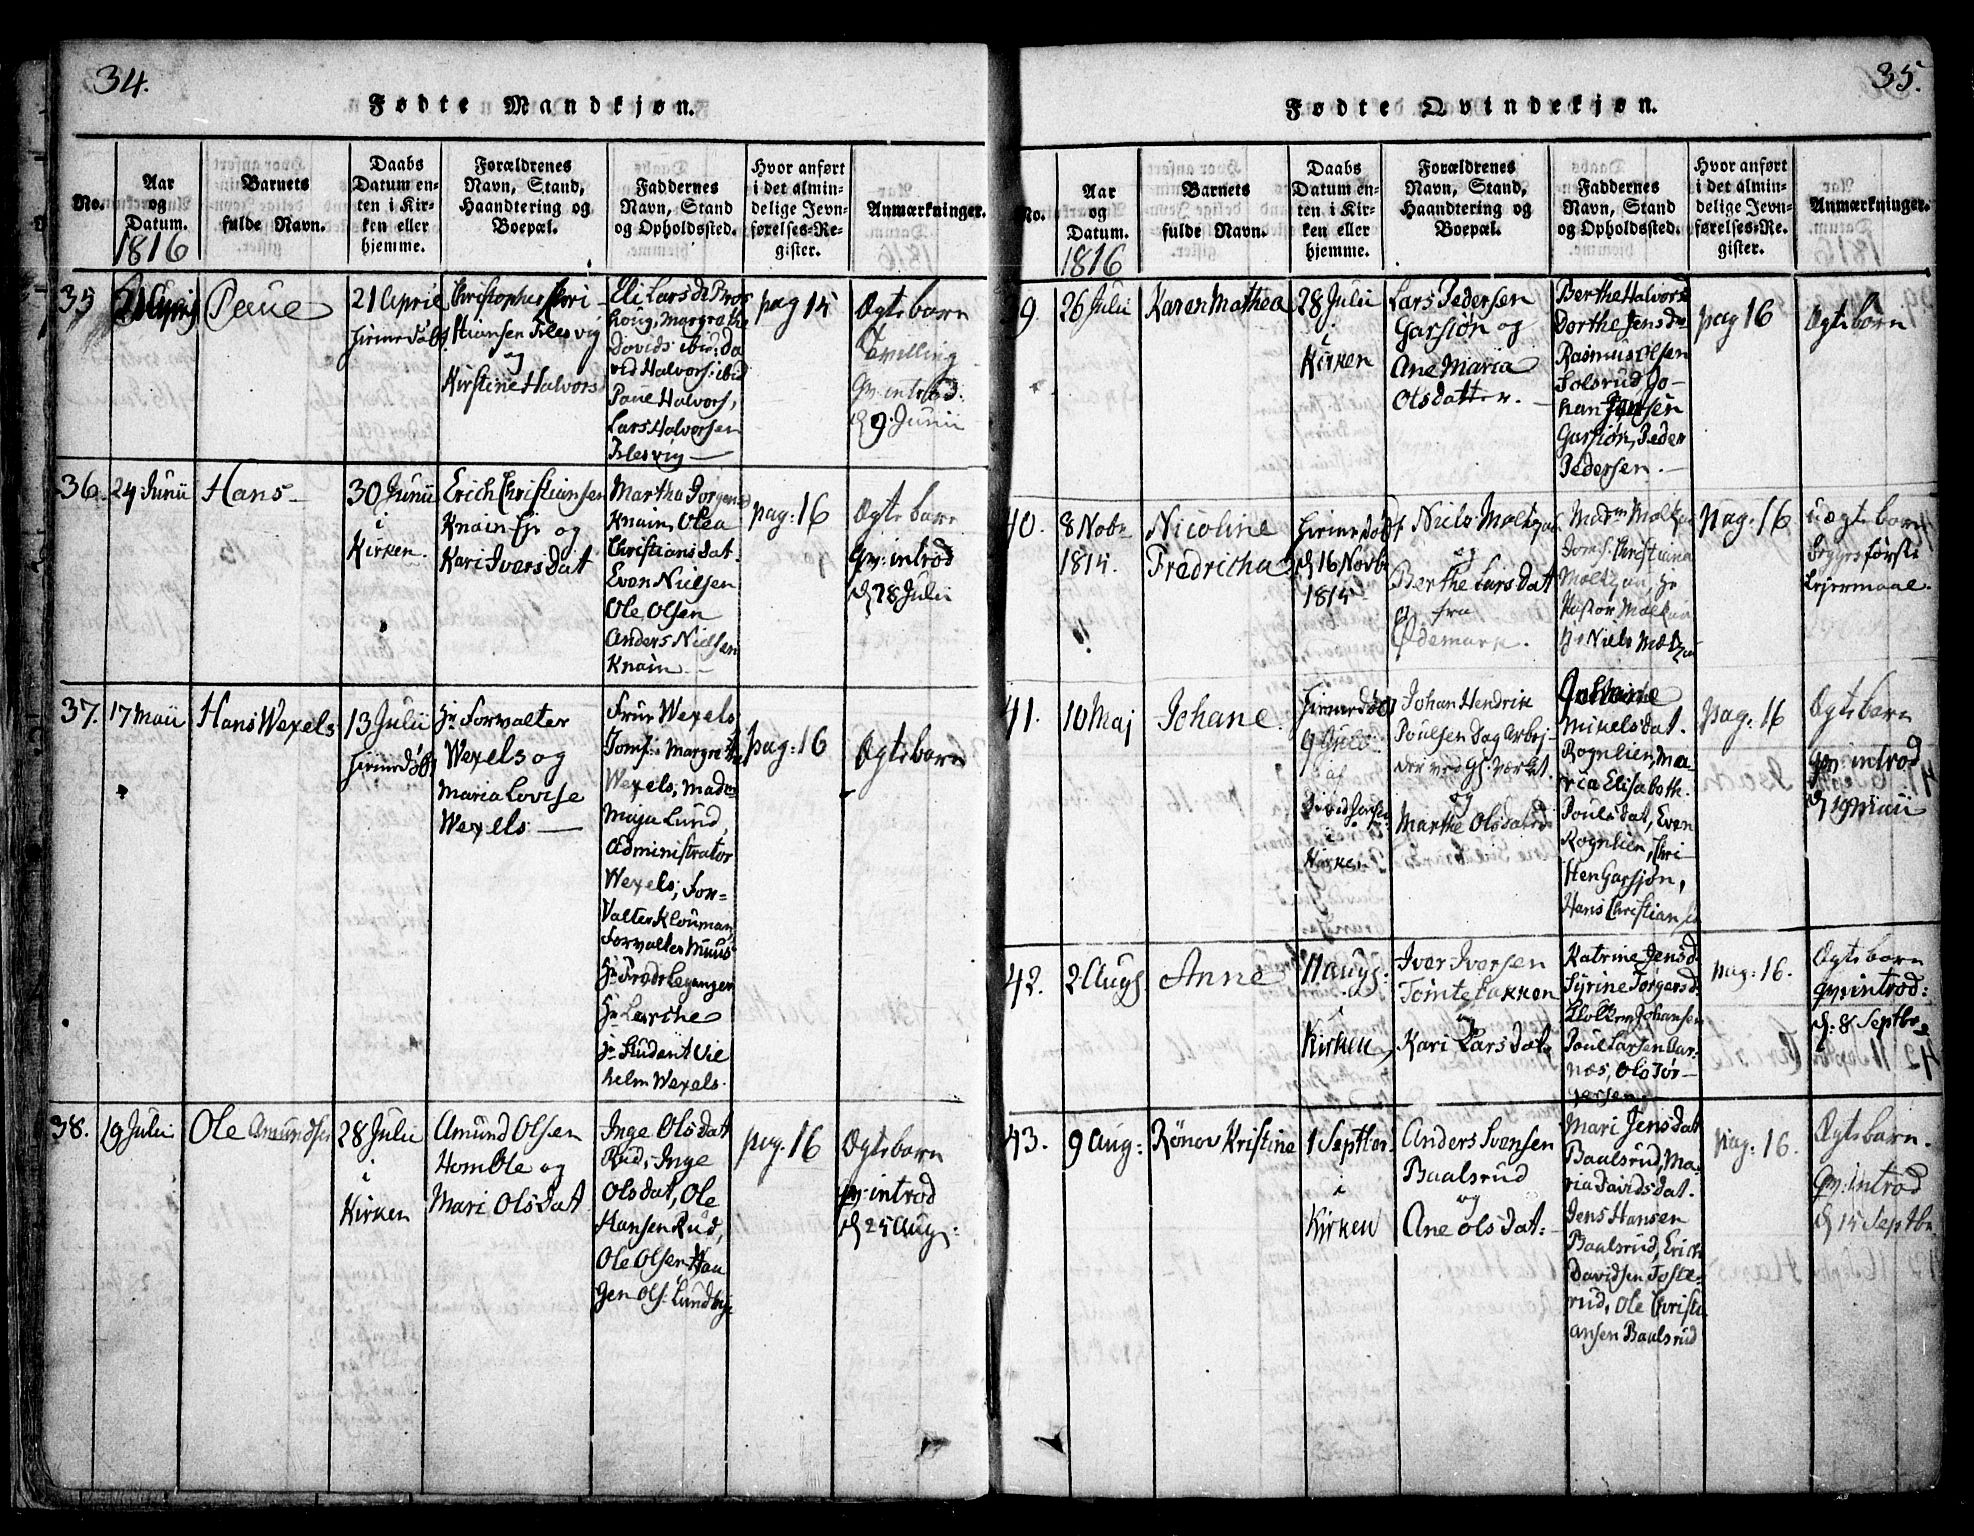 34.
Fødte Mandkjøn.
No.
Aar
og
Datum.
1816
Barnets
fulde Navn.
Daabs
Datum en-
ten i Kir-
ken eller
hjemme.
Forældrenes
Navn, Stand,
Haandtering og
Boepæl.
Faddernes
Navn, Stand
og Opholdssted.
Hvor anført
i det almin-
delige Jevn-
førelses-Re-
gister.
Anmærkninger.
35
21 April
Paul
21 April
Christopher Chri-
stiansen
og
Kirstine Halvors
Eli Larsd
Margrethe
Davids ibid: Da
vid Halvors: ibid
Halvors,
Lars Halvorsen
pag 15
Ægte barn
Tvilling
Qv: introd:
d 9 Junii
36.
24 Junii
Hans
30 Junii
i
Kirken.
Erich Christiansen
Knain Eje og
Kari Iversdat
Martha Jørgensd
Knain, Olea
Christiansdat.
Even Nielsen
Ole Olsen
Anders Nielsen
Knain
pag: 16
Ægte barn
Qv: introd
d 28 Julii
37.
17 Maii
Hans Wexels
13 Julii
Hr Forvalter
Wexels og
Maria Lovise
Wexels
Frue Wexels
Jomf: Margrethe
Wexels, Madm
Maja Lund,
Administrator
Wexels, For-
valter Klouman,
Forvalter Muus
Hr Lerche
Hr Student Vil
helm Wexels.
pag: 16
Ægte barn
38.
19 Julii
Ole Amundsen
28 Julii
i
Kirken
Amund Olsen
Homble og
Mari Olsdat
Inge Olsdat
Rud, Inge
Olsdat, Ole
Hansen Rud,
Ole Olsen Hau
gen Ols: Lundbye
pag: 16
Ægte barn
Qv: introd
d 25 Aug:
35.
Fødte Qvindekjøn.
No.
Aar
og
Datum.
1816
Barnets
fulde Navn.
Daabs
Datum en-
ten i Kir-
ken eller
hjemme.
Forældrenes
Navn, Stand,
Haandtering og
Boepæl.
Faddernes
Navn, Stand
og Opholdssted.
Hvor anført
i det almin-
delige Jevn-
førelses-Re-
gister.
Anmærkninger.
39.
26 Julii
Karen Mathea
28 Julii
i
Kirken
Lars Pedersen
Garsiøn og
Ane Maria
Olsdatter.
Berthe Halvorsd
Dorthe Jensdr
Rasmus Olsen
Solsrud Jo-
han Jensen
Garsiøn, Peder
Pedersen.
pag 16
Ægte barn
40.
8 Novbr
1815.
Nicoline
Fredricha
d 16 Novbr
1815
Niels Moltzau
og
Berthe Larsdat
fra
Ødemark.
Madm Moltzau
Jomf: Christiana
Moltzau, Hr
Pastor Moltzau
Hr Niels Moltzau
pag: 16
Uægte barn
Begges første
Lejermaal.
41.
10 Maj
Johane
i
Kirken
Johan Hendrik
Poulsen Dag Arbej-
der ved Gl: værket.
og
Marthe Olsdatter
Mikelsdat.
Rognlien, Ma-
ria Elisabeth.
Poulsdat, Even
Rognlien, Chri-
sten Garsjøn,
Hans Christiansen
pag: 16
Ægte barn
Qv: introd
d 19 Maii
42.
2 Augs
Anne
11 augs:
i
Kirken
Iver Iversen
Tomtebakken
og
Kari Larsdat.
Katrine Jensd.
Syrine Jørgensd:
Johansen
Poul Larsen Aar-
næs, Ole Jør-
gensen
pag: 16.
Ægte barn
Qv: introd:
d: 8 Septbr
43.
9 Aug:
Rønov Kristine
1 Septbr.
i
Kirken
Anders Svensen
Baalsrud
og
Ane Olsdat:
Mari Jensdat
Baalsrud, Ma-
ria Davidsdat.
Jens Hansen
Baalsrud, Erich
Davidsen Toste-
rud, Ole Christi
ansen Baalsrud
pag: 16.
Ægte barn.
Qv: introd
d 15 Septbr